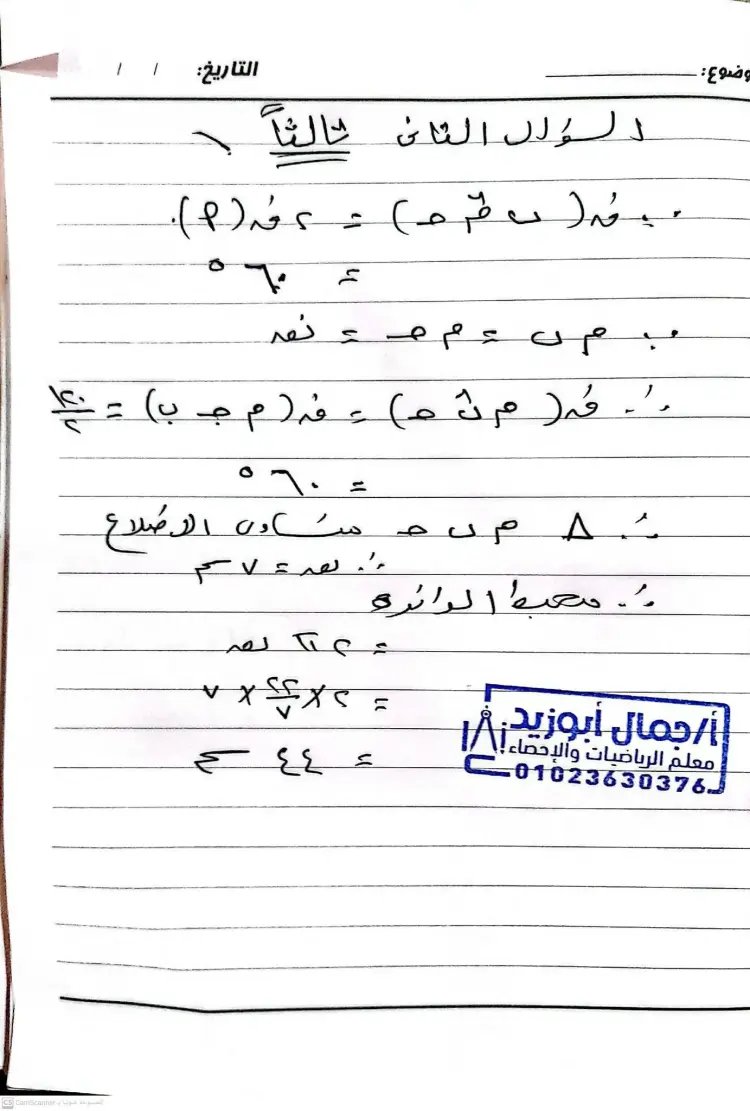 الموضوع:
التاريخ: / /
السؤال الثانى ثالثاً
∵ ق(ب م ح) = ٢ ق(م).
= ٦٠°
∵ م ب = م ح = نق
∴ ق(م ب ح) = ق(م ج ب) = ١٢٠/٢
= ٦٠°
∴ Δ م ب ح متساوى الاضلاع
∴ نق = ٧ سم
∴ محيط الدائرة
= ٢ π نق
= ٢ × ٢٢/٧ × ٧
= ٤٤ سم
أ/جمال أبوزيد
معلم الرياضيات والإحصاء
01023630376
CS CamScanner